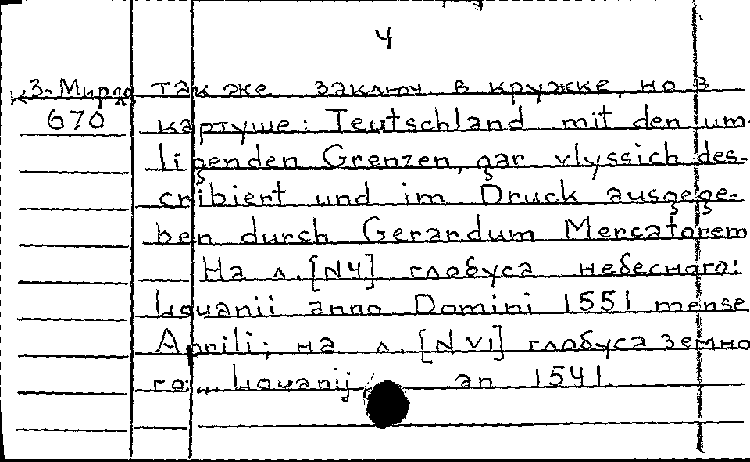 4
также заключ в кружке, но в
670 картуше: Teutschland mit den um-
ligenden Grenzen, gar vlyssich des-
cribiert und im Druck ausgege-
ben durch Gerardum Mercatorem
На л. [N4] глобуса небесного:
Louanii anno Domini 1551 mense
Aprili; на л. [N VI] глобуса земно
го... Louanij an 1541.